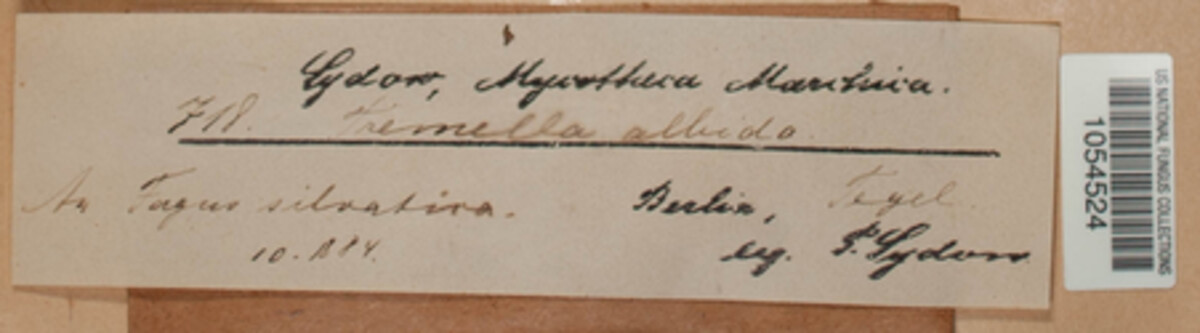 Sydow, Mycotheca Marchica.
718. Tremella albida.
An Fagus silvatica. Berlin, Tegel.
10. 1884. leg. P. Sydow
US NATIONAL FUNGUS COLLECTIONS
1054524